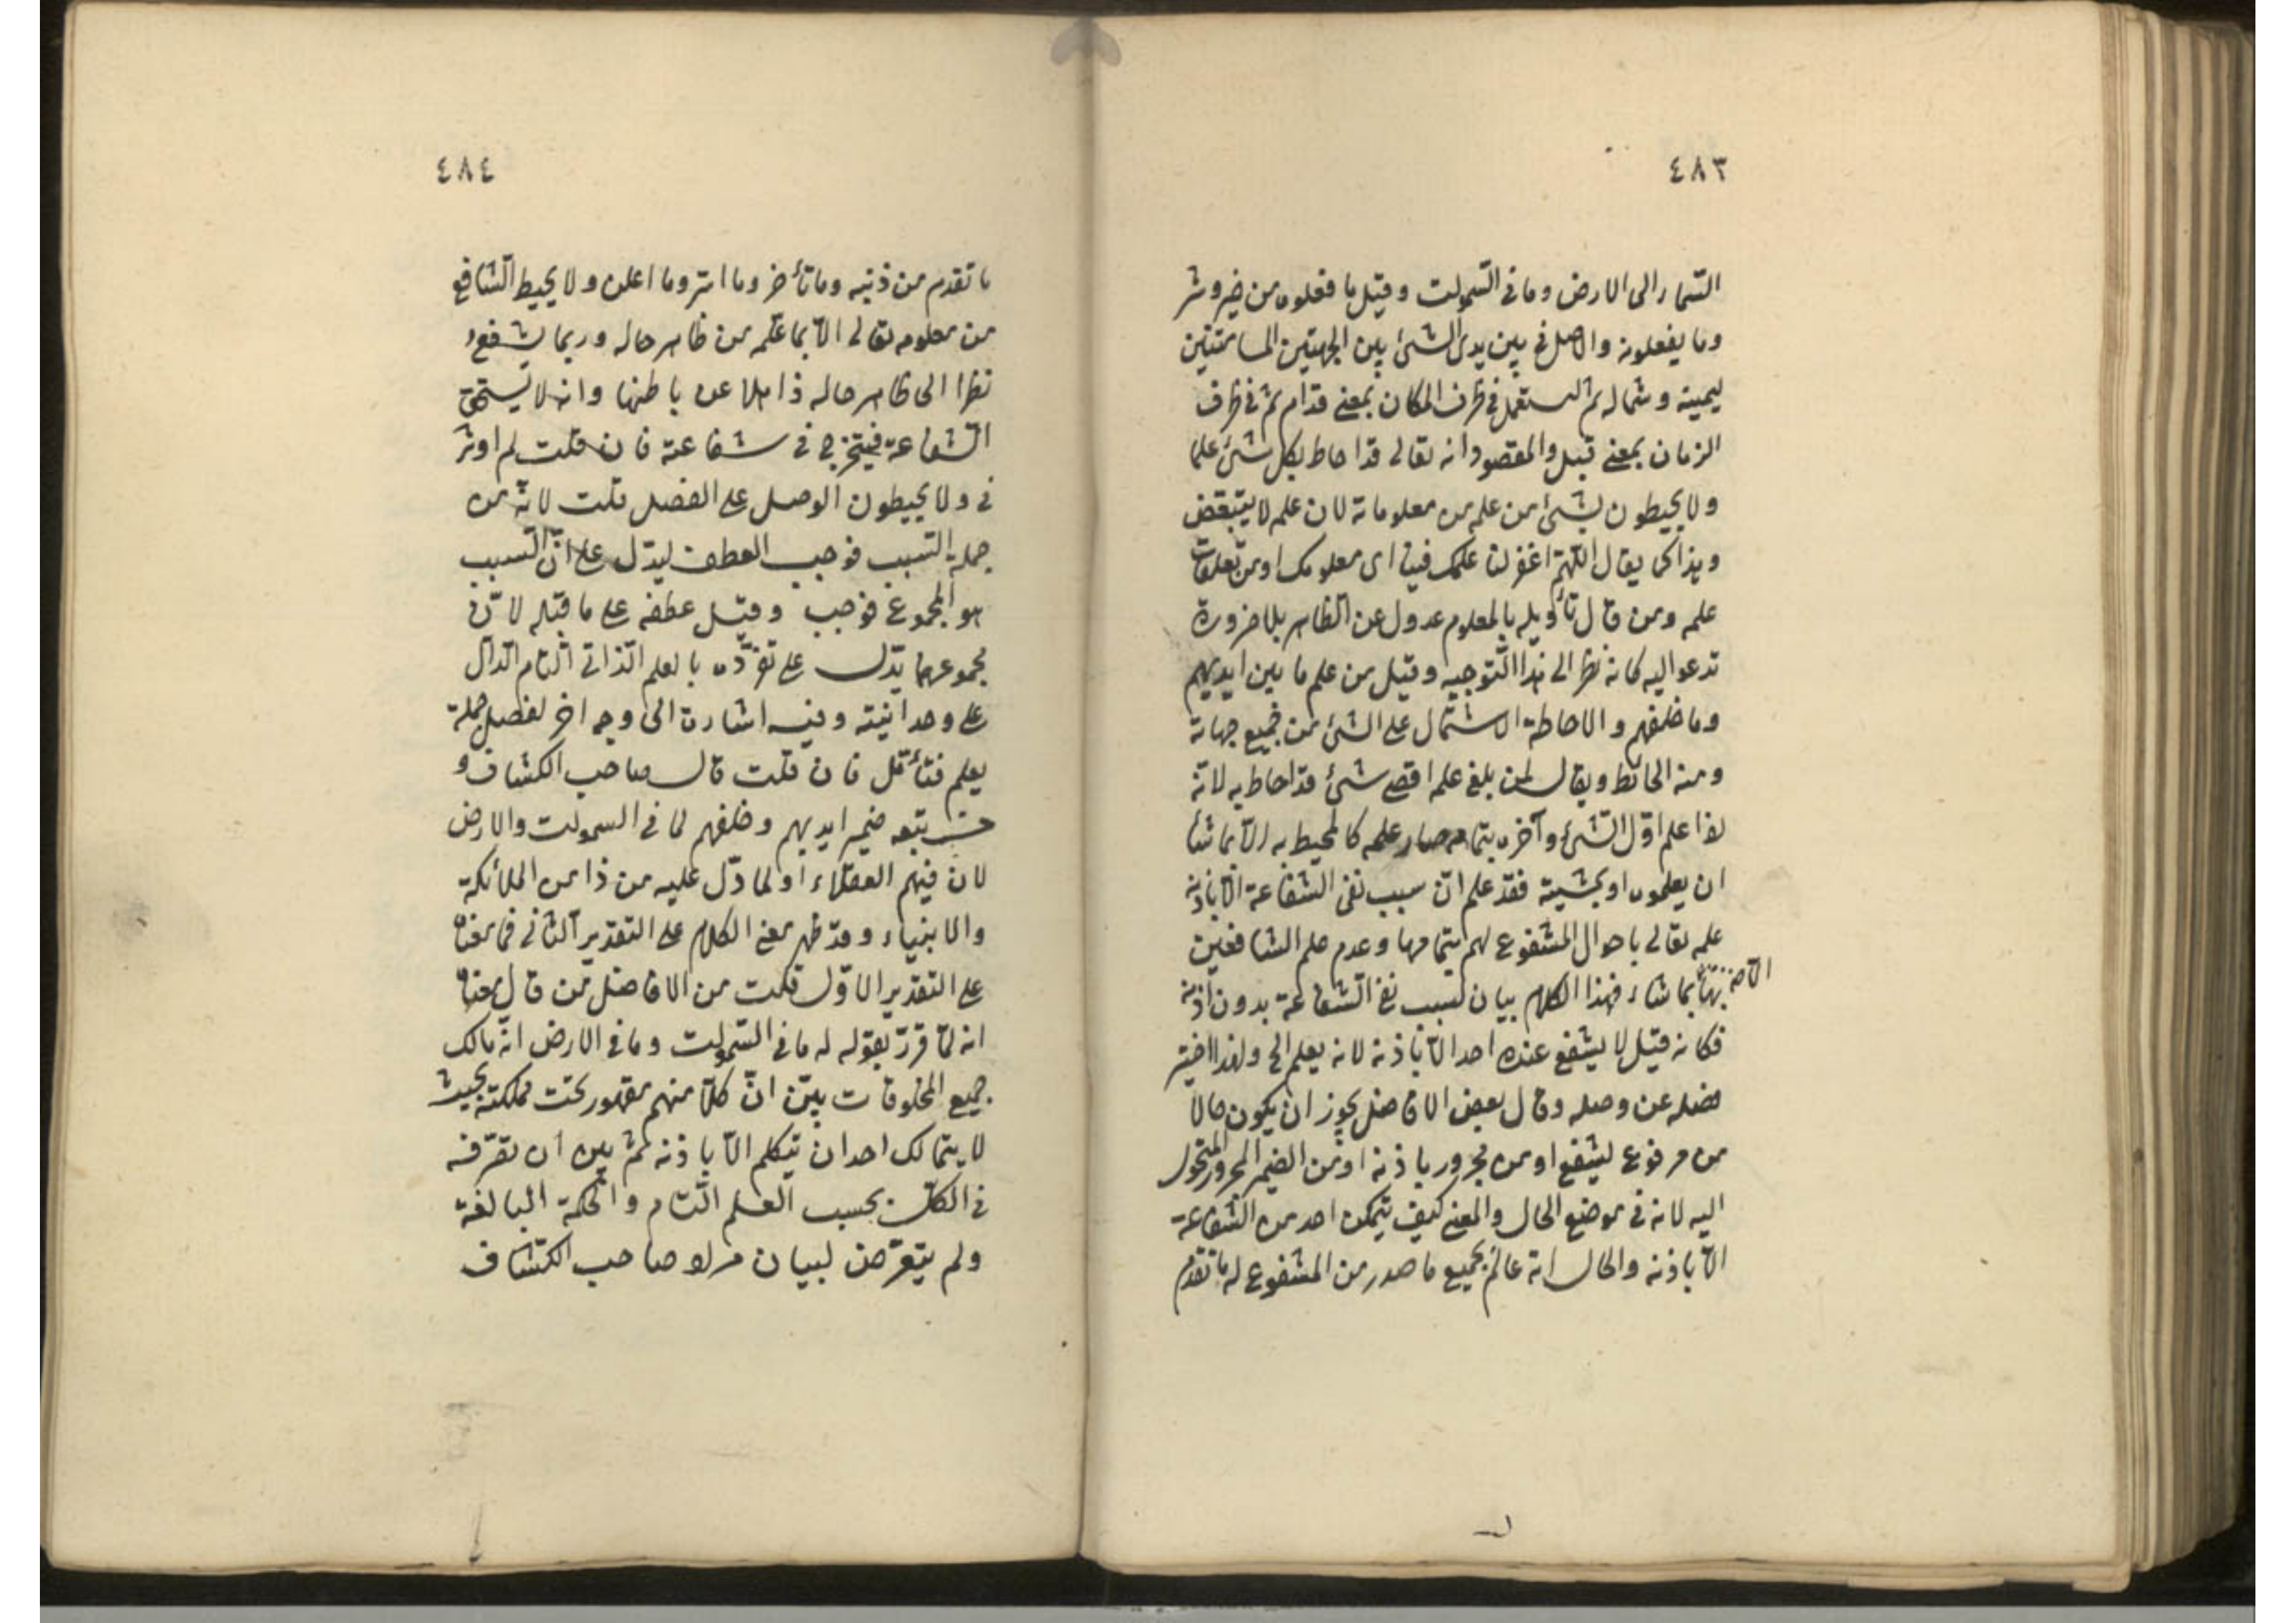 ٤٨٣
السّماء الى الارض وما فى السّموات وقيل ما فعلوه من خير وشر
وما يفعلونه والاصل فى بين يدى الشئ بين الجهتين المسامتتين
ليمينه وشماله ثم استعمل فى ظرف المكان بمعنى قدام ثم فى ظرف
الزمان بمعنى قبل والمقصود انه تعالى قد احاط بكل شئ علما
ولا يحيطون بشئ من علمه من معلوماته لان علمه لا يتبعّض
وهذا كما يقال اللّهمّ اغفر لنا علمك فينا اى معلومك او من تعلقات
علمه ومن قال تأويله بالمعلوم عدول عن الظاهر بلا ضرورة
تدعو اليه كانه نظر الى هذا التّوجيه وقيل من علم ما بين ايديهم
وما خلفهم والاحاطة الاشتمال على الشئ من جميع جهاته
ومنه الحائط ويقال لمن بلغ علمه اقصى شئ قد احاط به لانّه
اذا علم اوّل الشّئ وآخره بتمامه صار علمه كالمحيط به الّا بما شاء
ان يعلموه او بمشيته فقد علم انّ سبب نفى الشفاعة الّا باذنه
علمه تعالى باحوال المشفوع لهم بتمامها وعدم علم الشافعين
الّا بما شاء فهذا الكلام بيان لسبب نفى الشّفاعة بدون اذنه
فكانه قيل لا يشفع عنده احد الّا باذنه لانه يعلم الخ ولهذا اختير
فصله عن وصله وقال بعض الافاضل يجوز ان يكون حالا
من مرفوع يشفع او من مجرور باذنه او من الضمير المجرور المتحول
اليه لانه فى موضع الحال والمعنى كيف يتمكن احد من الشفاعة
الّا باذنه والحال انّه عالم بجميع ما صدر من المشفوع له ما تقدم
٤٨٤
ما تقدم من ذنبه وما تأخر وما اسرّ وما اعلن ولا يحيط الشّافع
من معلومه تعالى الّا بما علّمه من ظاهر حاله وربما يشفع
نظرا الى ظاهر حاله ذاهلا عن باطنها وانه لا يستحق
الشفاعة فى شفاعته فان قلت لم اوثر
فى ولا يحيطون الوصل على الفصل قلت لانّه من
جملة السّبب فوجب العطف ليدّل على انّ السّبب
هو المجموع فوجب وقيل عطفه على ما قبله لانّ
مجموعهما يدّل على تفرّده بالعلم الذّاتى التّام الدّال
على وحدانيته وفيه اشارة الى وجه اخر لفصل جملة
يعلم فتأمّل فان قلت قال صاحب الكشاف و
ضمير ايديهم وخلفهم لما فى السموات والارض
لان فيهم العقلاء او لما دّل عليه من ذا من الملائكة
والانبياء وقد ظهر معنى الكلام على التقدير الثّانى فما معناه
على التقدير الاوّل قلت من الافاضل من قال معناه
انه لمّا قرّر بقوله له ما فى السّموات وما فى الارض انّه مالك
جميع المخلوقات بيّن انّ كلّا منهم مقهور تحت مملكته بحيث
لا يتمالك احد ان يتكلم الّا باذنه ثمّ بين ان تصّرفه
فى الكلّ بحسب العلم التّام والحكمة البالغة
ولم يتعرّض لبيان مراد صاحب الكشاف